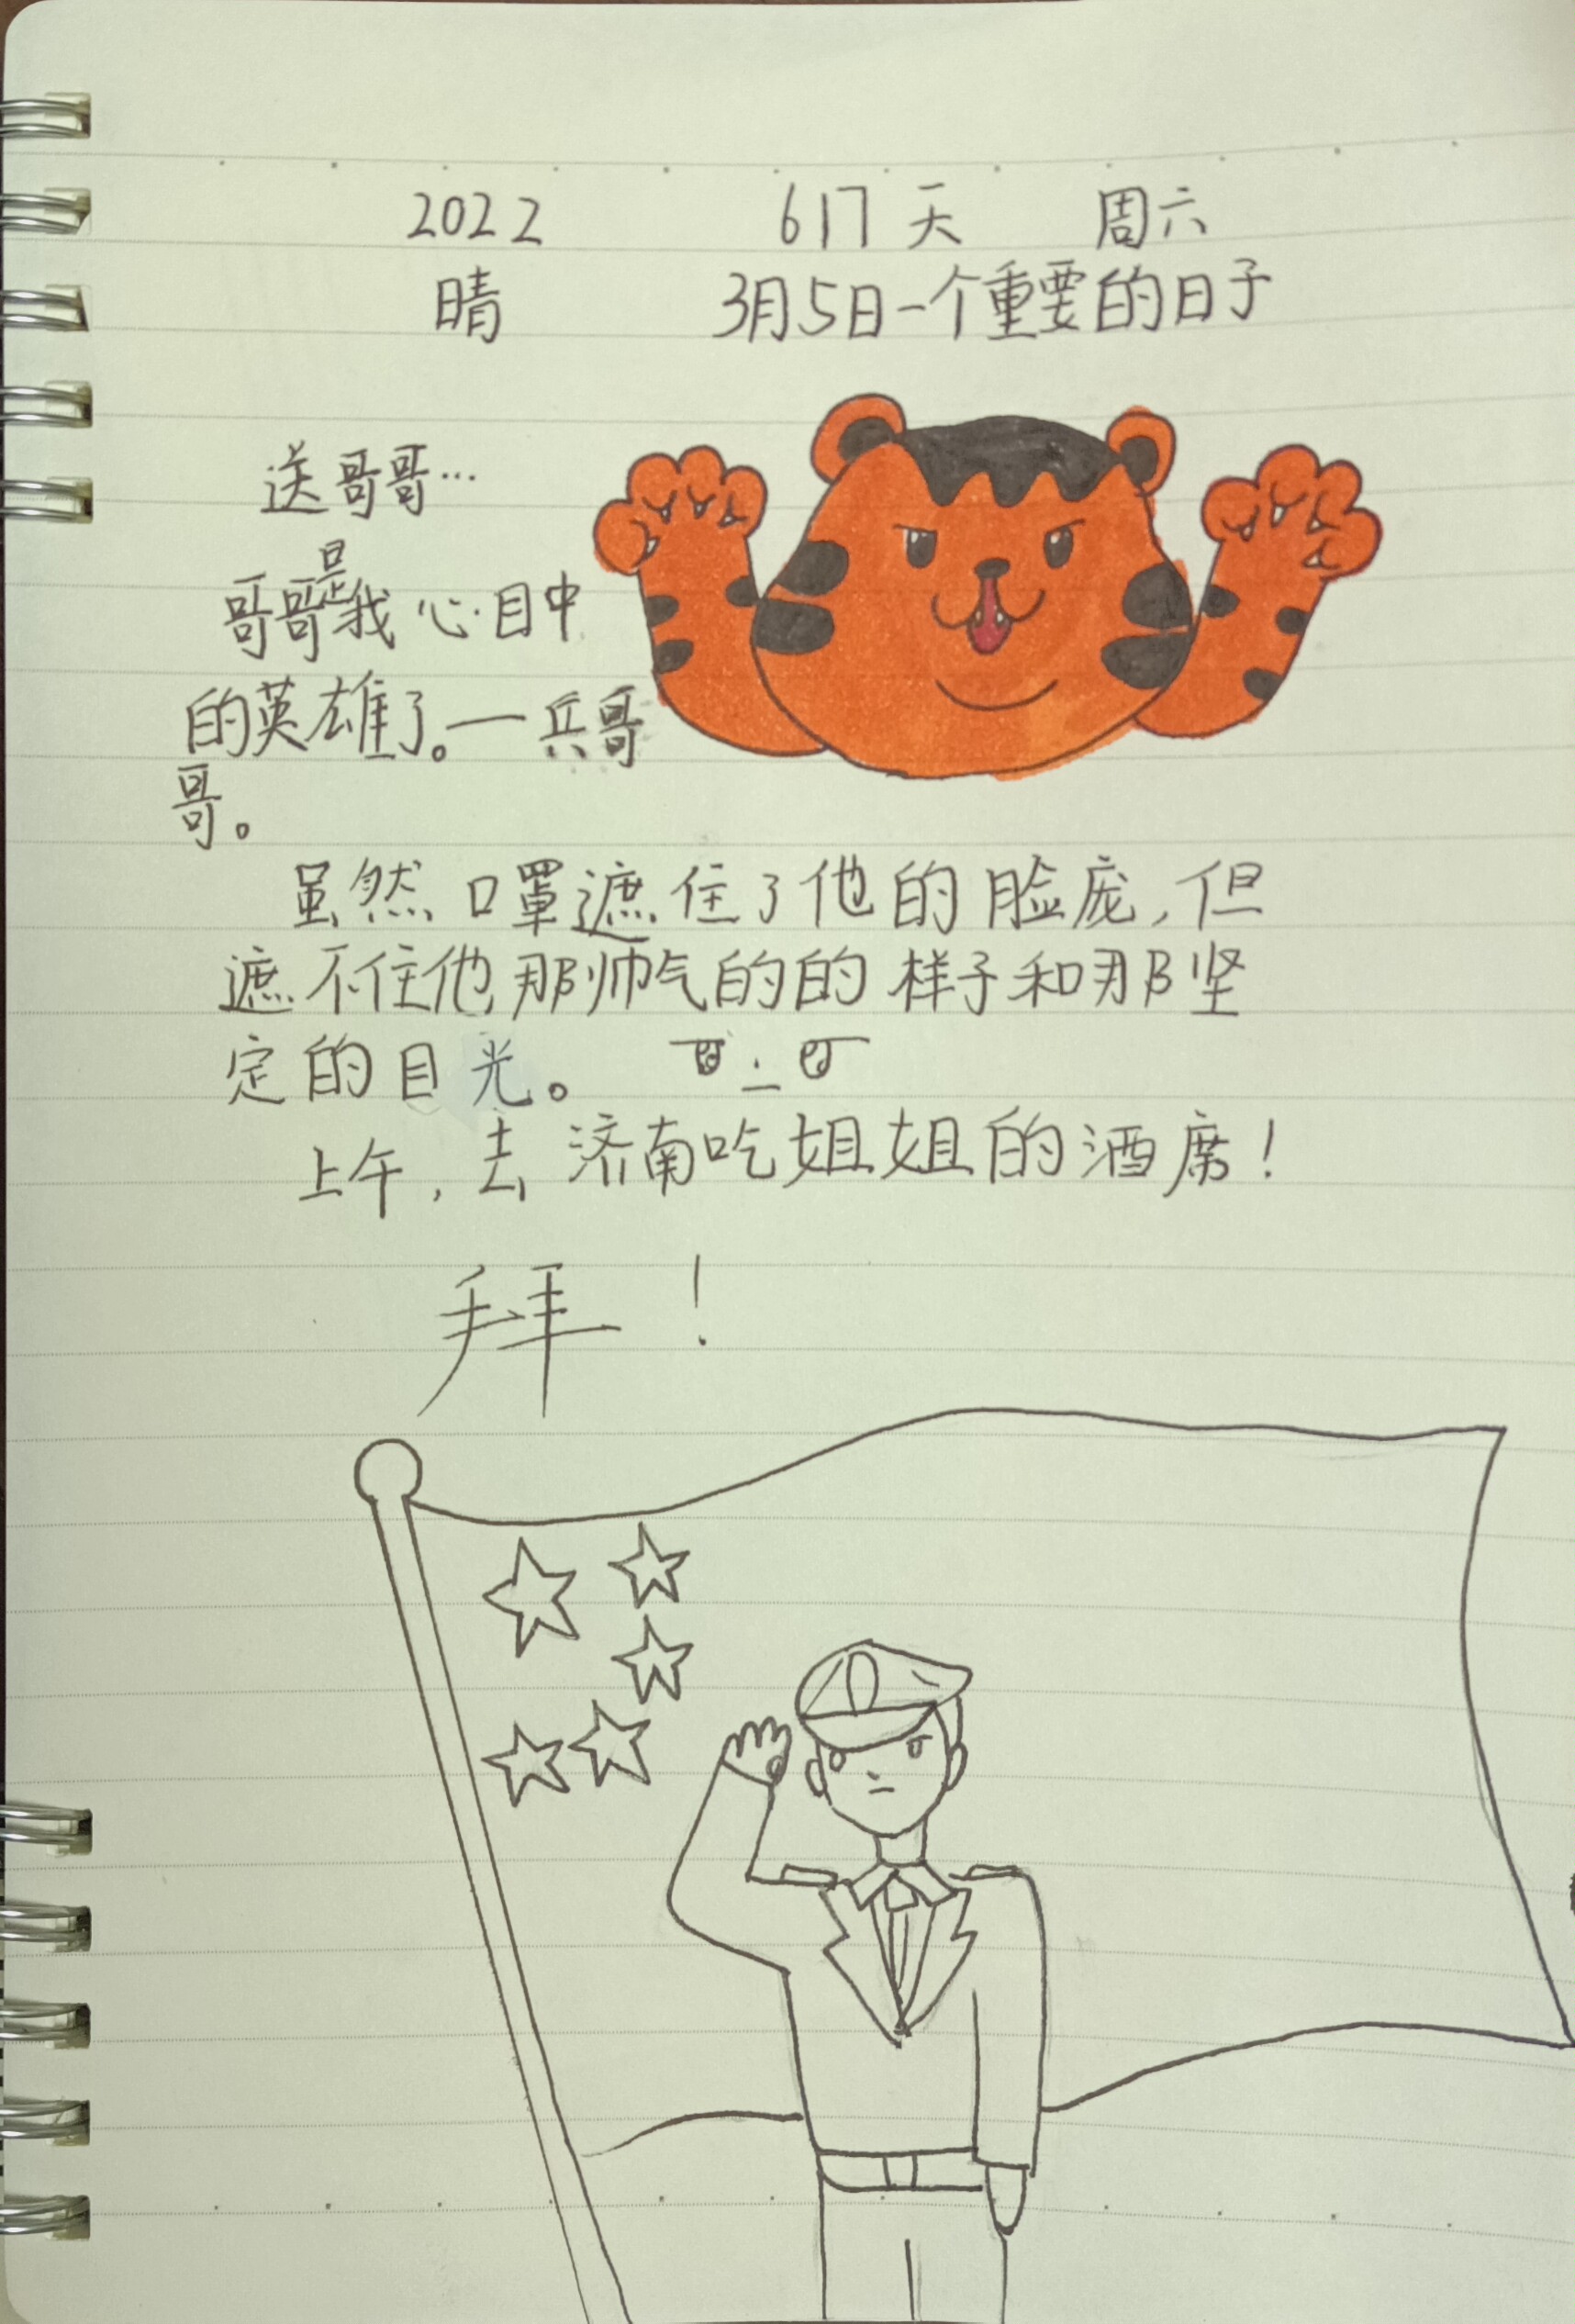 2022 617天 周六
晴 3月5日一个重要的日子
送哥哥…
哥哥是我心目中
的英雄了。一兵哥
哥。
虽然口罩遮住了他的脸庞,但
遮不住他那帅气的的样子和那坚
定的目光。
上午,去济南吃姐姐的酒席!
拜!